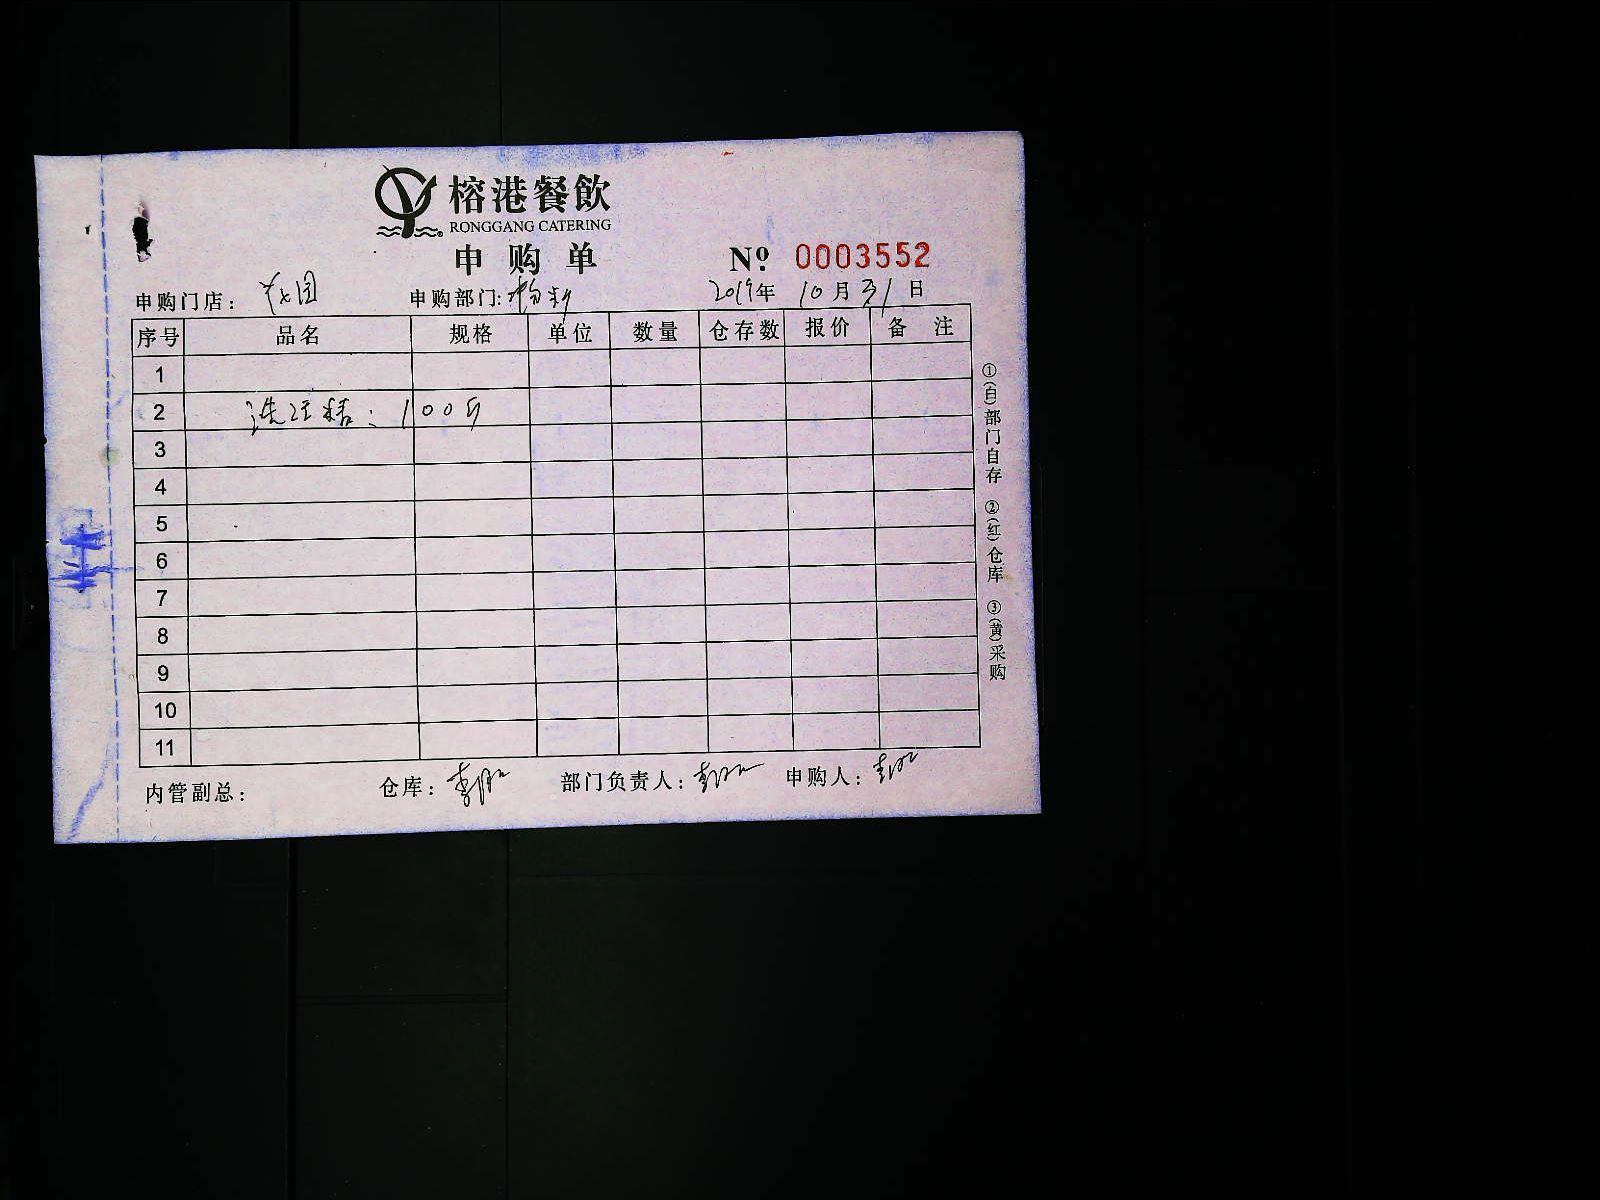 榕港餐飲
RONGGANG CATERING
申购单
Nº 0003552
申购门店: 花园 申购部门: 2019年 10月31日
序号 品名 规格 单位 数量 仓存数 报价 备 注
1
2 洗洁精: 100斤
3
4
5
6
7
8
9
10
11
①(白)部门自存 ②(红)仓库 ③(黄)采购
内管副总: 仓库: 部门负责人: 申购人: